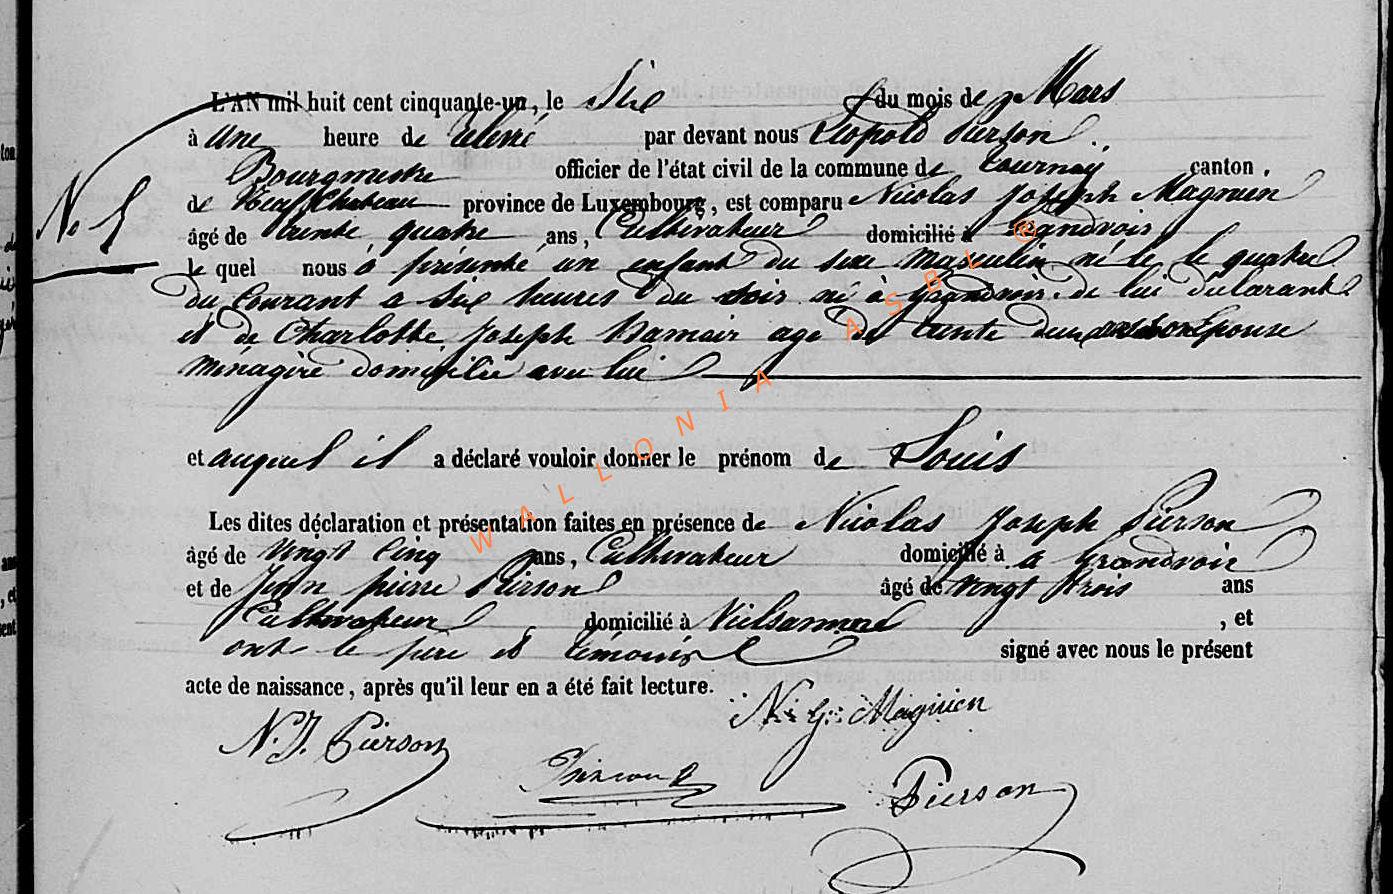 L'AN mil huit cent cinquante-un, le Six du mois de Mars
à une heure de relevé par devant nous Léopold Pierson
Bourgmestre officier de l'état civil de la commune de Tournay canton
de Neufchateau province de Luxembourg, est comparu Nicolas Joseph Magnien
N° 5
âgé de trente quatre ans, Cultivateur domicilié à Grandvoir
le quel nous a présenté un enfant du sexe masculin né le le quatre
du Courant a Six heures du soir né à Grandvoir de lui déclarant
et de Charlotte Joseph Hamoir age de trente deux ans son Epouse
ménagère domicilié avec lui
et auquel il a déclaré vouloir donner le prénom de Louis
Les dites déclaration et présentation faites en présence de Nicolas Joseph Pierson
âgé de Vingt Cinq ans, Cultivateur domicilié à a Grandvoir
et de Jean pierre Pierson âgé de vingt trois ans
Cultivateur domicilié à , et
ont le père et témoins signé avec nous le présent
acte de naissance, après qu'il leur en a été fait lecture.
N. J. Magnien
N. J. Pierson
Pierson
WALLONIA ASBL ®